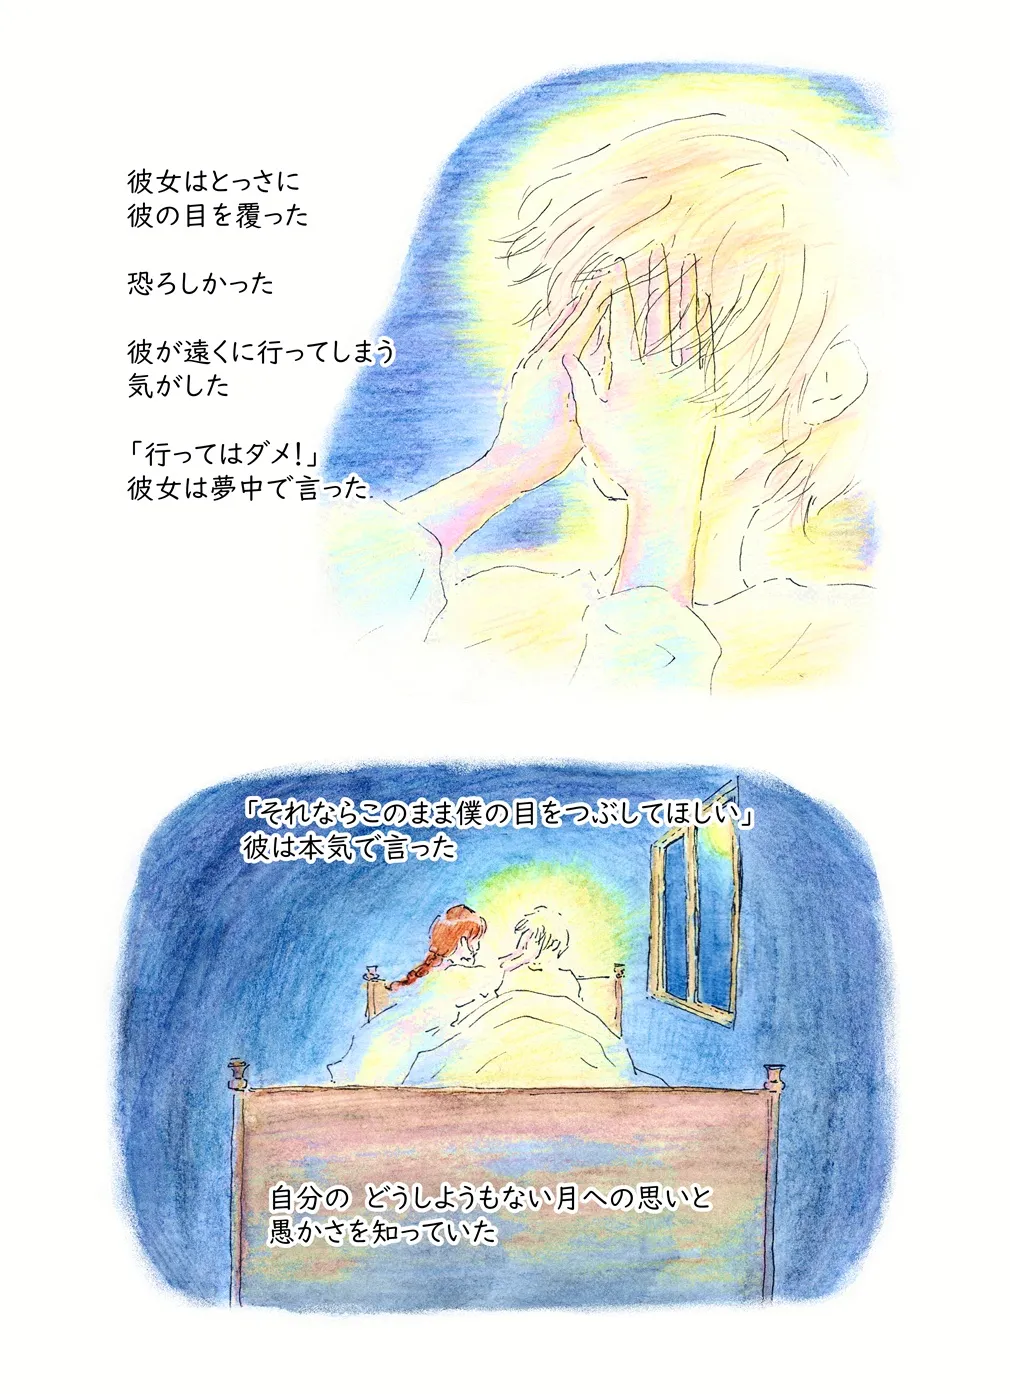 彼女はとっさに
彼の目を覆った
恐ろしかった
彼が遠くに行ってしまう
気がした
「行ってはダメ!」
彼女は夢中で言った
「それならこのまま僕の目をつぶしてほしい」
彼は本気で言った
自分の どうしようもない月への思いと
愚かさを知っていた